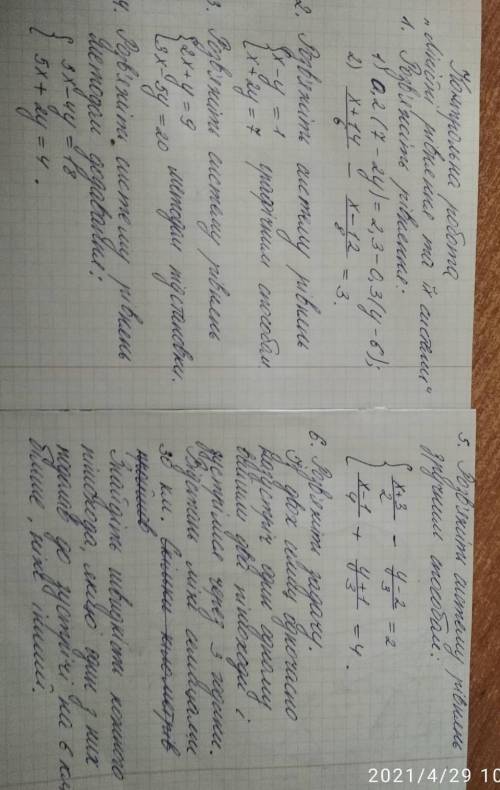 Контрольна робота
„Лінійні рівняння та їх системи"
1. Розв'яжіть рівняння:
1) 0,2(7 - 2y) = 2,3 - 0,3(y - 6);
2) x+14/6 - x-12/8 = 3.
2. Розв'яжіть систему рівнянь
{ x - y = 1
x + 2y = 7 графічним способом
3. Розв'яжіть систему рівнянь
{ 2x + y = 9
3x - 5y = 20 методом підстановки.
4. Розв'яжіть систему рівнянь
методом додавання:
{ 3x - 4y = 18
5x + 2y = 4.
5. Розв'яжіть систему рівнянь
зручним способом:
{ x+3/2 - y-2/3 = 2
x-1/4 + y+1/3 = 4.
6. Розв'яжіть задачу.
Із двох селищ одночасно
назустріч один одному
вийшли два пішоходи і
зустрілися через 3 години.
Відстань між селищами
30 км.
Знайдіть швидкість кожного
пішохода, якщо один з них
пройшов до зустрічі на 6 км
більше, ніж інший.
2021/4/29 10